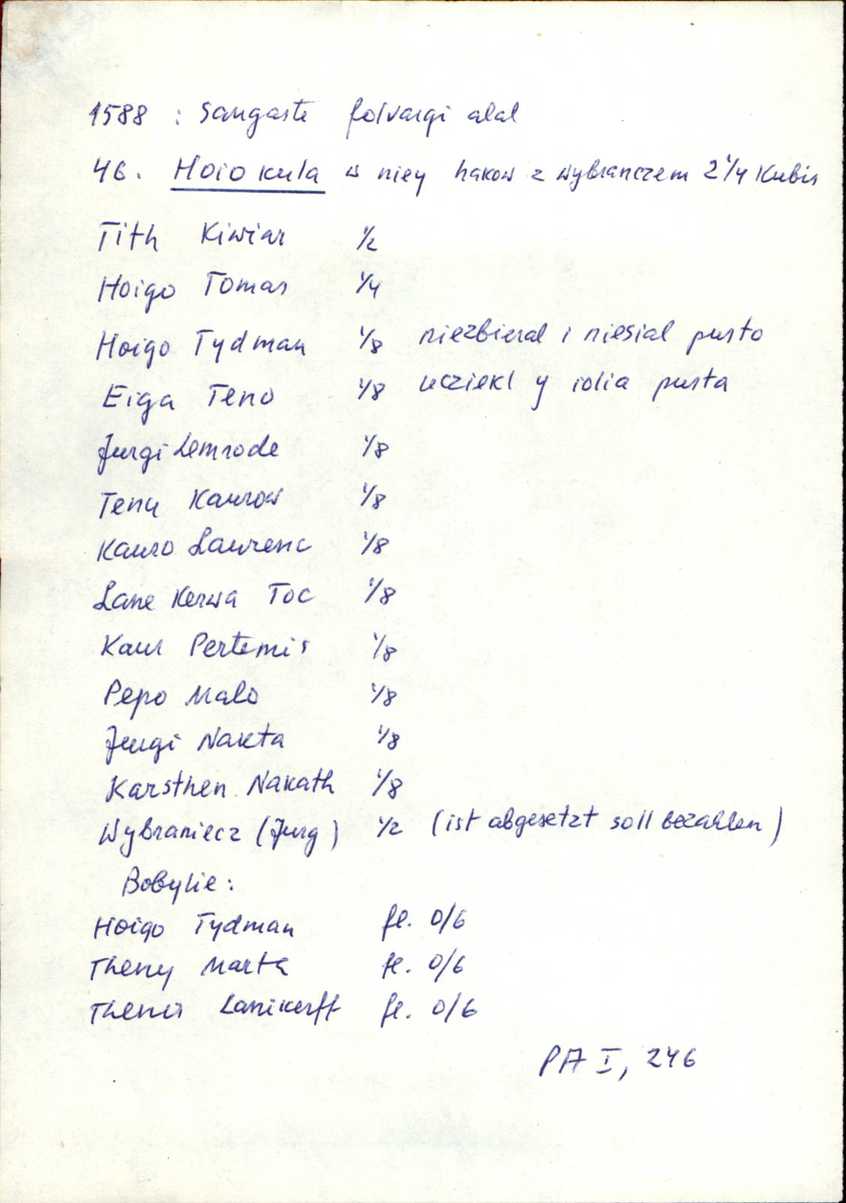 1588 : Sangaste folvargi alal
46. Hoiokula w niey hakow z wybranczem 2 1/4 Kubis
Tith Kiwiar 1/2
Hoigo Tomas 1/4
Hoigo Tydman 1/8 niezbieral i niesial pusto
Eiga Teno 1/8 ucziekl y rolia pusta
Jurgi Lemrode 1/8
Tenu Kaurow 1/8
Kauro Laurenc 1/8
Lane Kerwa Toc 1/8
Kaur Pertemis 1/8
Pepo Malo 1/8
Jurgi Nakta 1/8
Karsthen Nakath 1/8
Wybraniecz (Jurg) 1/2 (ist abgesetzt soll bezahlen)
Bobylie:
Hoigo Tydman fl. 0/6
Theny Marth fl. 0/6
Thenis Lanikerff fl. 0/6
PA I, 246